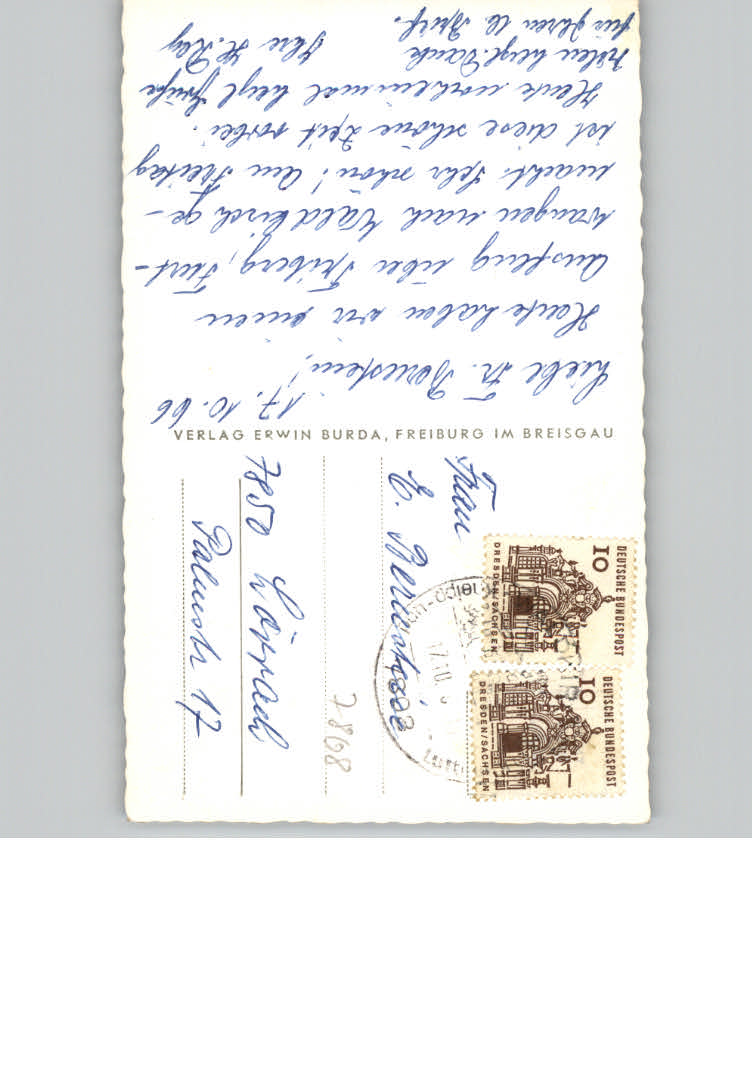 17.10.66
Liebe Fr. Bernstein!
Heute haben wir einen
Ausflug über Triberg, Furt-
wangen nach Waldkirch ge-
macht. Sehr schön! Am Freitag
ist diese schöne Zeit vorbei.
Heute noch einmal herzl Grüße
vielen herzl. Dank Ihre H.
für Ihren lb. Brief.
VERLAG ERWIN BURDA, FREIBURG IM BREISGAU
Frau
E. Bernstein
7850 Lörrach
Palmstr 17
7868
DEUTSCHE BUNDESPOST
10
DRESDEN/SACHSEN
DEUTSCHE BUNDESPOST
10
DRESDEN/SACHSEN
17.10.